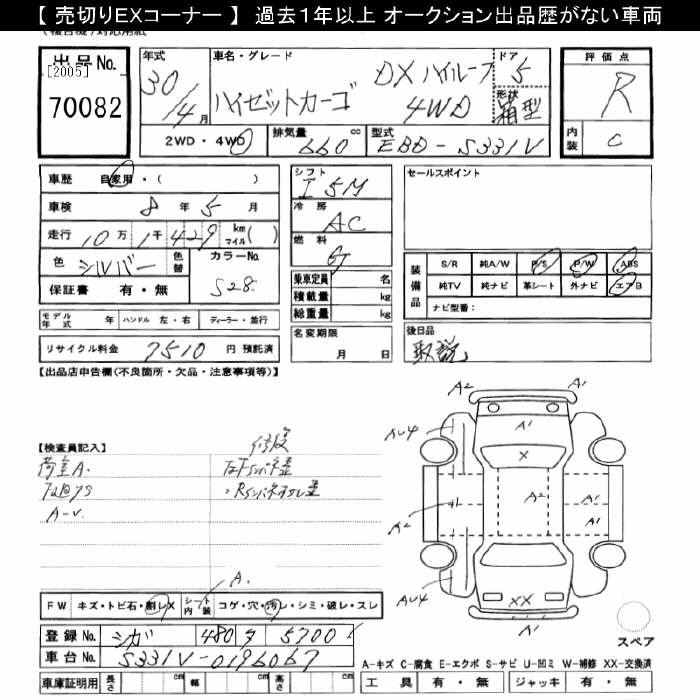 【 売切りEXコーナー 】 過去１年以上 オークション出品歴がない車両
出品No.
[2005]
70082
年式
30/4月
車名・グレード
ハイゼットカーゴ
DX ハイルーフ
4WD
ドア
5
形状
箱型
評価点
R
内装
C
2WD・4WD
排気量
660 cc
型式
EBD-S331V
車歴 自家用・( )
車検 8 年 5 月
走行 10万 1千 429 km マイル( )
色 シルバー
色替
カラーNo.
S28
保証書 有・無
シフト
I 5M
冷房
AC
燃料
G
乗車定員 名
積載量 kg
総重量 kg
セールスポイント
装備品
S/R 純A/W P/S P/W ABS
純TV 純ナビ 革シート 外ナビ エアB
ナビ型番：
モデル年式 年 ハンドル 左・右 ディーラー・並行
リサイクル料金 7510 円 預託済
名変期限
月 日
後日品
取説
【出品店申告欄(不良箇所・欠品・注意事項等)】
【検査員記入】
修復
荷室A.
A-v.
A2
A1
A1
AU4
X
A2
A1
A1
A2
AU4
XX
A.
FW キズ・トビ石・割レX
シート内装 コゲ・穴・汚レ・シミ・破レ・スレ
登録No. シガ 480 タ 5700
車台No. S331V-0196067
スペア
A-キズ C-腐食 E-エクボ S-サビ U-凹ミ W-補修 XX-交換済
車庫証明用 長さ cm 幅 cm 高さ cm
工具 有・無 ジャッキ 有・無